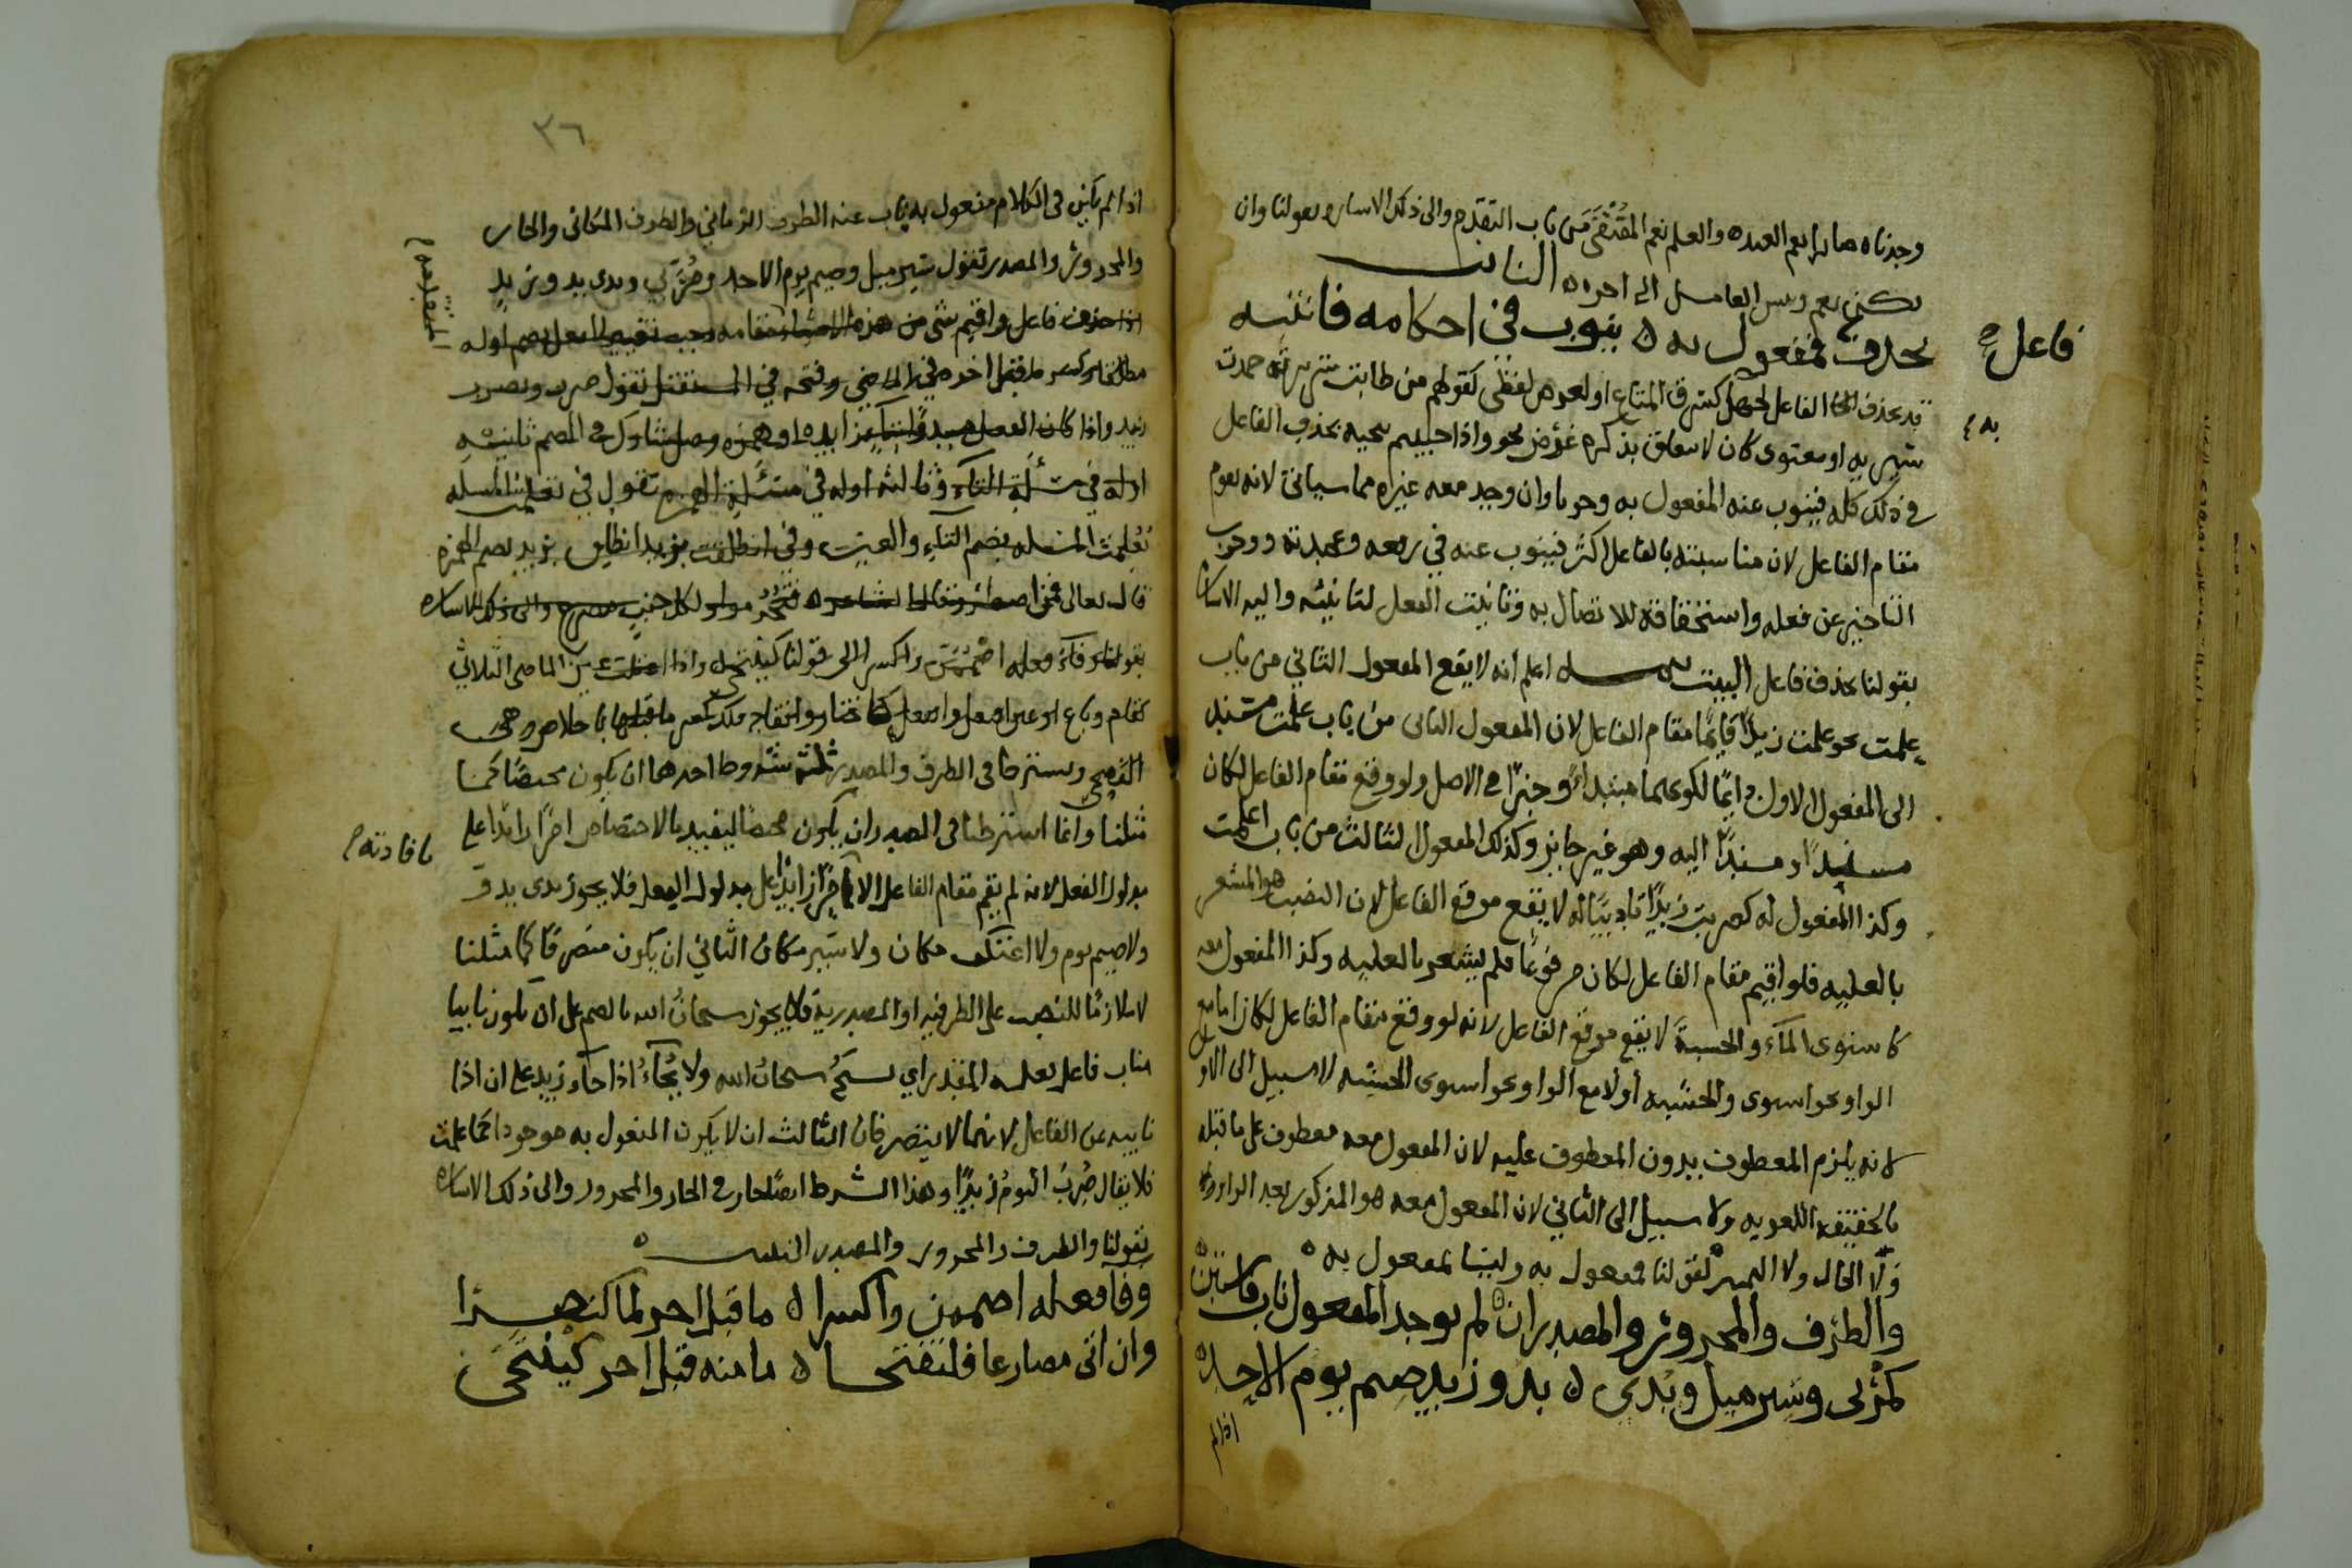 وجدناه صابرا نعم العبد والعلم نعم المقتفى من باب التقدم والى ذلك الاشاره بقولنا وان
العامل الى اخره النائب
فاعل
يحذف فمفعول به ينوب في احكامه فاتبه
قد يحذف الفاعل للجهل كسرق المتاع او لغرض لفظي كقولهم من طابت سريرته حمدت
سيرته او معنوي كان لا يتعلق بذكره غرض نحو واذا حييتم بتحيه فحذف الفاعل
به
في ذلك كله فينوب عنه المفعول به وجوبا وان وجد معه غيره مما سياتي لانه يقوم
مقام الفاعل لان مناسبته بالفاعل اكثر فينوب عنه في رفعه وعمديته ووجوب
التاخير عن فعله واستحقاقه للاتصال به وتانيث الفعل لتانيثه واليه الاشاره
بقولنا يحذف فاعل البيت اعلم انه لا يقع المفعول الثاني من باب
علمت نحو علمت زيدا قايما مقام الفاعل لان المفعول الثاني من باب علمت مسند
الى المفعول الاول دايما لكونهما مبتدا وخبرا في الاصل ولو وقع مقام الفاعل لكان
مسندا ومسندا اليه وهو غير جايز وكذلك المفعول الثالث من باب اعلمت
وكذا المفعول له كضربت زيدا تاديبا له لا يقع موقع الفاعل لان النصب هو المشعر
بالعليه فلو اقيم مقام الفاعل لكان مرفوعا فلم يشعر بالعليه وكذا المفعول معه
كاستوى الماء والخشبة لا يقع موقع الفاعل لانه لو وقع مقام الفاعل لكان اما مع
الواو نحو استوى والخشبه او لا مع الواو نحو استوى الخشبه لا سبيل الى الاول
لانه يلزم المعطوف بدون المعطوف عليه لان المفعول معه معطوف على ما قبله
بالحقيقه اللغويه ولا سبيل الى الثاني لان المفعول معه هو المذكور بعد الواو
ولا الحال ولا التمييز لقولنا مفعول به وليسا بمفعول به
والظرف والمجرور والمصدر ان لم يوجد المفعول ناب فاستبن
كمر بي وسير ميل وبدي بدو وزيد صيم يوم الاحد
اذا لم
٣٦
اذا لم يكن في الكلام مفعول به ناب عنه الظرف الزماني والظرف المكاني والجار
والمجرور والمصدر تقول سير ميل وصيم يوم الاحد ومر بي وبدي بدو وزيد
اذا حذف فاعل واقيم شي من هذه الاشيا مقامه وجب تغيير الفعل بضم اوله
مطلقا وكسر ما قبل اخره في الماضي وفتحه في المستقبل تقول ضرب ويضرب
زيد واذا كان الفعل مبدوا بتاء زايده او همزه وصل شارك في الضم ثانيه
اوله في مسئلة التاء وثالثه اوله في مسئلة الهمزه تقول في تعلمت المسله
تعلمت المسله بضم التاء والعين وفي انطلقت بزيد انطلق بزيد بضم الهمزه
قال تعالى فمن اضطر وقال الشاعر فتخرموا ولكل جنب مصرع والى ذلك الاشاره
بقولنا وفاء فعله اضممن واكسرا الى قولنا كينتحى واذا اعتلت عين الماضي الثلاثي
كقام وباع او عين افتعل وانفعل كاختار وانقاد فلك كسر ما قبلها باخلاص وهي
الفصحى ويشترط في الظرف والمصدر ثلثة شروط احدهما ان يكون مختصا كما
مثلنا وانما اشترطنا في المصدر ان يكون مختصا ليفيد بالاختصاص امرا زايدا على
بافادته
مدلول الفعل لانه لم يقم مقام الفاعل الا امرا زايدا على مدلول الفعل فلا يجوز بدي بدو
ولا صيم يوم ولا اعتكف مكان ولا سير مكان الثاني ان يكون متصرفا كما مثلنا
لا ملازما للنصب على الظرفيه او المصدرية فلا يجوز سبحان الله بالضم على ان يكون نايبا
مناب فاعل فعله المقدر اي يسبح سبحان الله ولا يجاء اذا جاء زيد على ان اذا
نايبه عن الفاعل لانهما لا يتصرفان الثالث ان لا يكون المفعول به موجودا كما علمت
فلا يقال ضرب اليوم زيدا وهذا الشرط ايضا جار في الجار والمجرور والى ذلك الاشاره
بقولنا والظرف والمجرور والمصدر البيت
وفا فعله اضممن واكسرا ما قبل اخر لها
وان اتى مضارعا فلتفتحا ما منه قبل اخر كينتحى